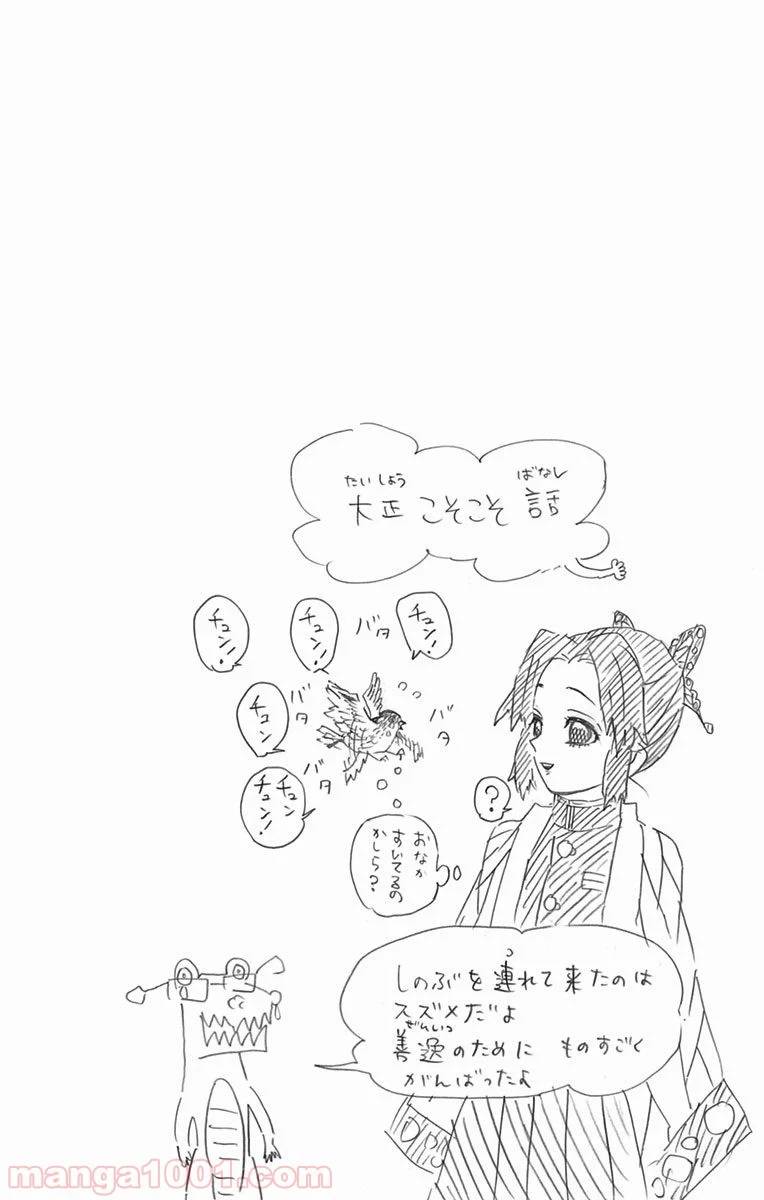 たいしょう ばなし
大正こそこそ話
チュン!
バタ
チュン!
チュン!!
バタ
バタ
チュン
バタ
チュン
チュン!
?
おなか
すいてるの
かしら?
つ
しのぶを連れて来たのは
スズメだよ
ぜんいつ
善逸のために ものすごく
がんばったよ
manga1001.com